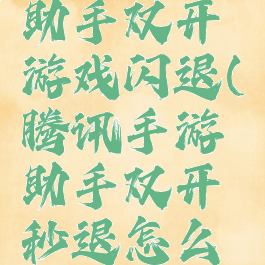 助手双开
游戏闪退(
腾讯手游
助手双开
秒退怎么